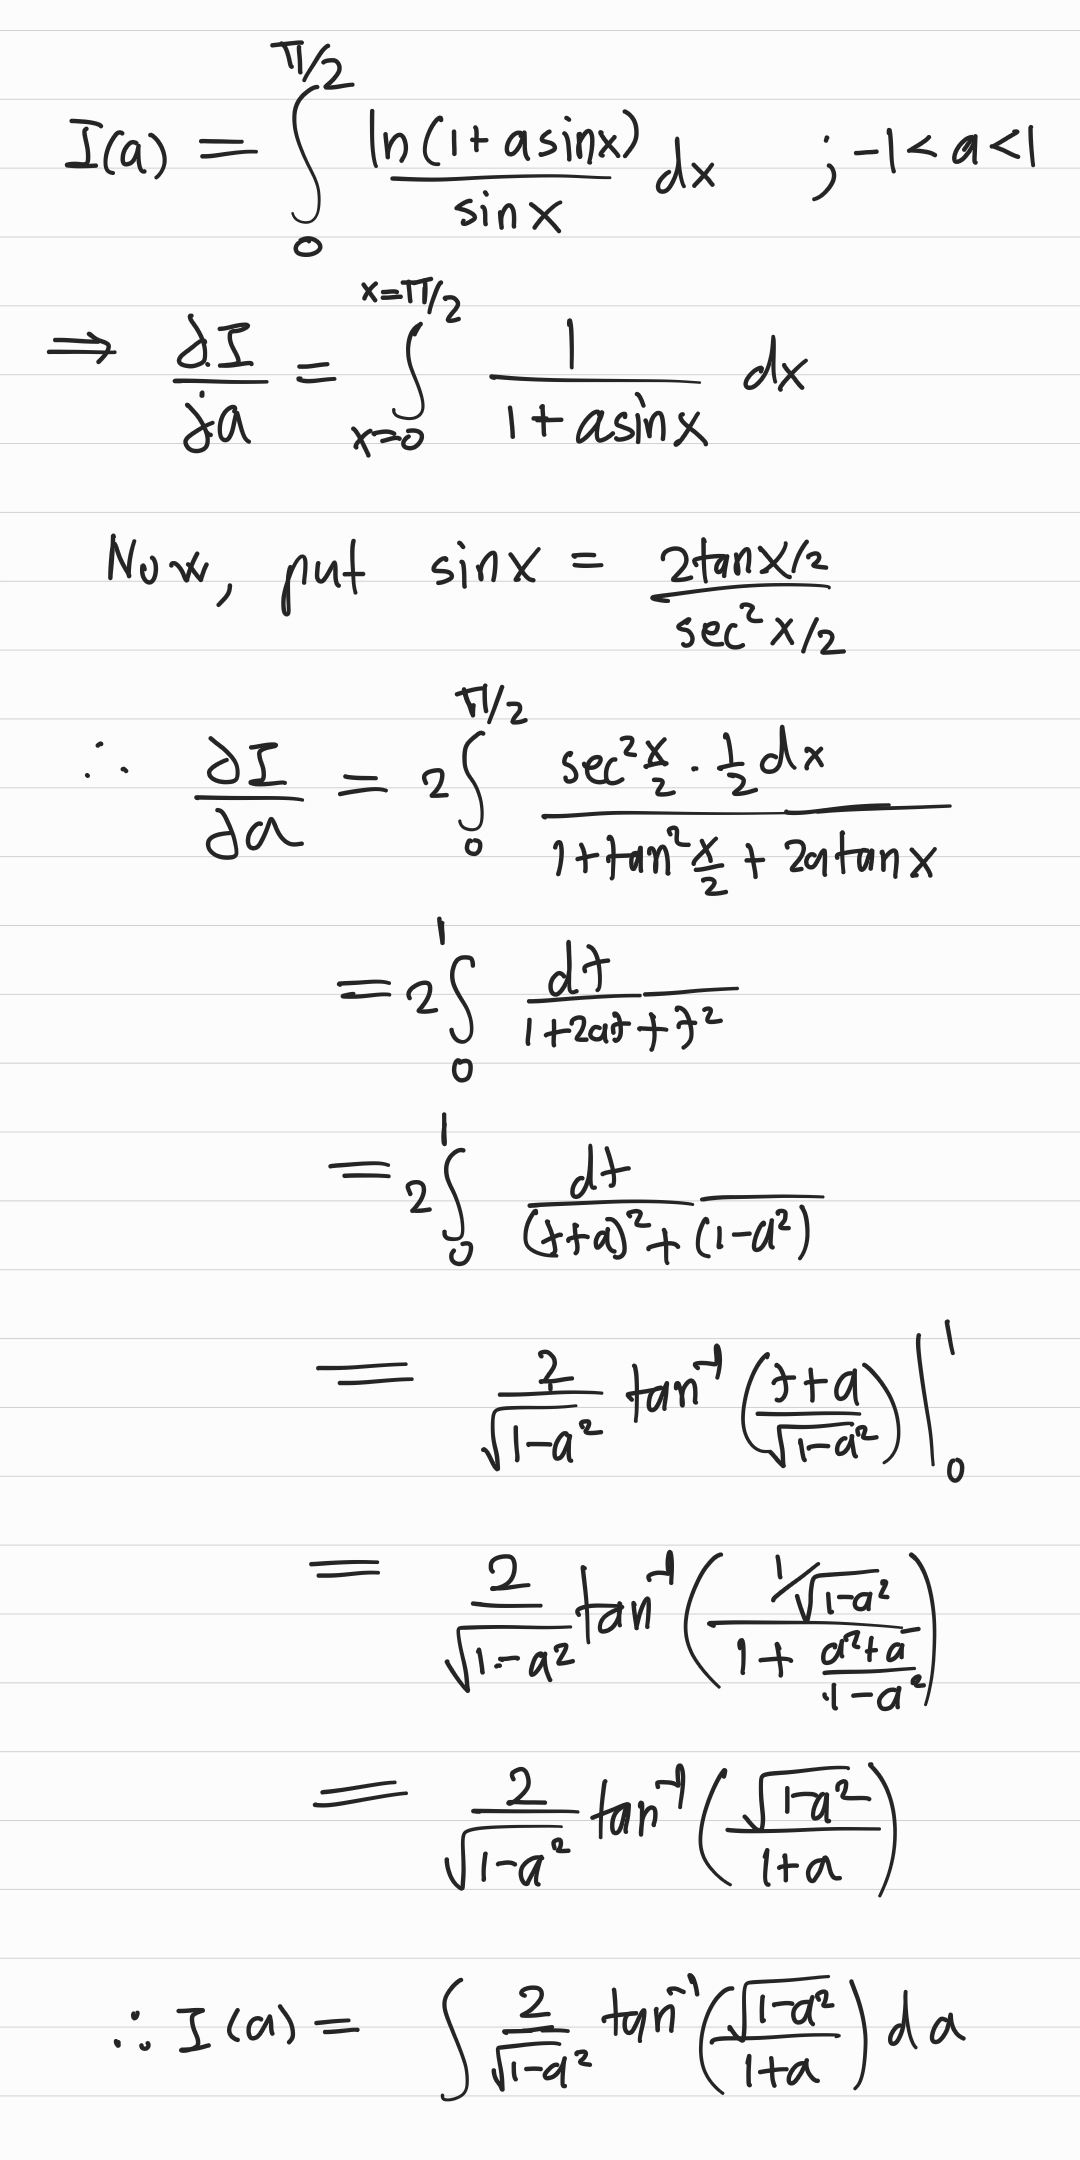 I(a) = ∫₀^{π/2} ln(1 + a sinx)/sinx dx ; -1 < a < 1
⇒ ∂I/∂a = ∫_{x=0}^{x=π/2} 1/(1 + a sinx) dx
Now, put sinx = 2tan x/2 / sec² x/2
∴ ∂I/∂a = 2 ∫₀^{π/2} (sec² x/2 · 1/2 dx)/(1 + tan² x/2 + 2a tan x)
= 2 ∫₀¹ dt/(1 + 2at + t²)
= 2 ∫₀¹ dt/((t+a)² + (1-a²))
= 2/√(1-a²) tan⁻¹((t+a)/√(1-a²)) |₀¹
= 2/√(1-a²) tan⁻¹((1/√(1-a²))/(1 + (a²+a)/(1-a²)))
= 2/√(1-a²) tan⁻¹(√(1-a²)/(1+a))
∴ I(a) = ∫ 2/√(1-a²) tan⁻¹(√(1-a²)/(1+a)) da